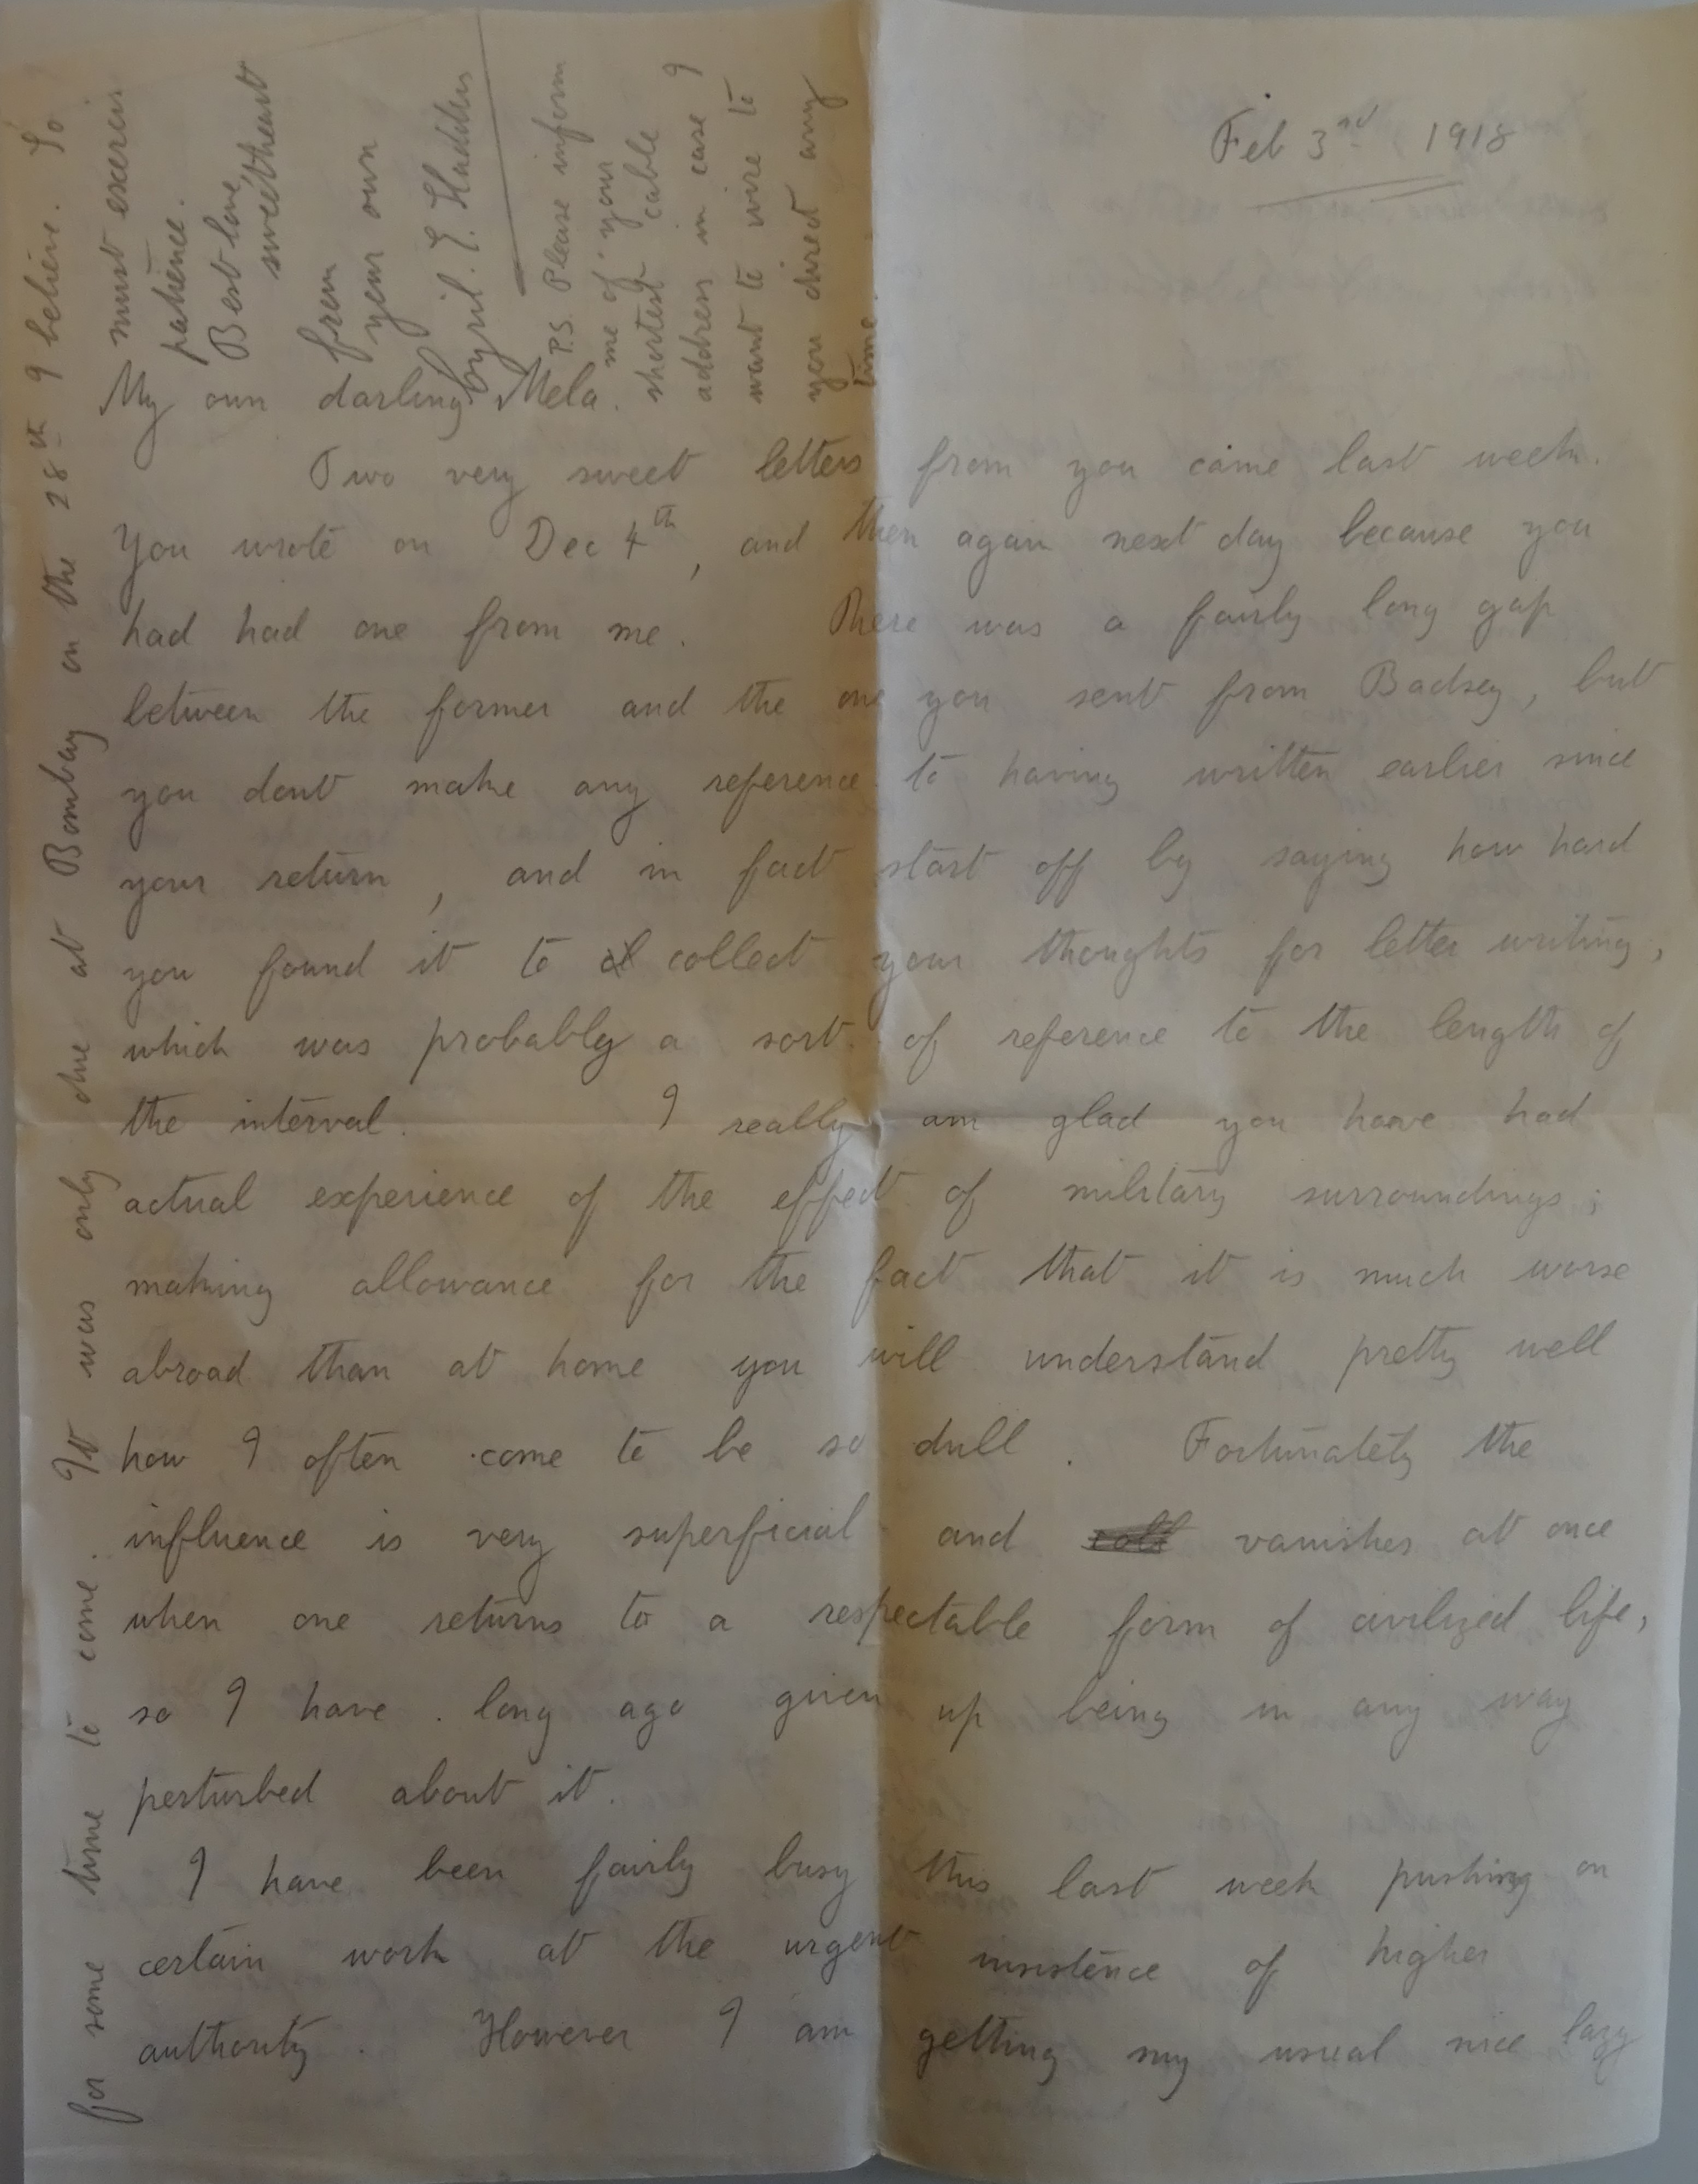 Feb 3rd 1918
My own darling Mela.
Two very sweet letters from you came last week.
You wrote on Dec 4th, and then again next day because you
had had one from me. There was a fairly long gap
between the former and the one you sent from Badsey, but
you dont make any reference to having written earlier since
your return, and in fact start off by saying how hard
you found it to collect your thoughts for letter writing,
which was probably a sort of reference to the length of
the interval. I really am glad you have had
actual experience of the effect of military surroundings;
making allowance for the fact that it is much worse
abroad than at home you will understand pretty well
how I often come to be so dull. Fortunately the
influence is very superficial and vanishes at once
when one returns to a respectable form of civilized life,
so I have long ago given up being in any way
perturbed about it.
I have been fairly busy this last week pushing on
certain work at the urgent insistence of higher
authority. However I am getting my usual nice lazy
for some time to come. It was only due at Bombay on the 28th I believe. So
must exercise
patience.
Best love,
sweetheart
from
your own
Cyril. E. Sladden
P.S. Please inform
me of your
shortest cable
address in case I
want to wire to
you direct any
time.